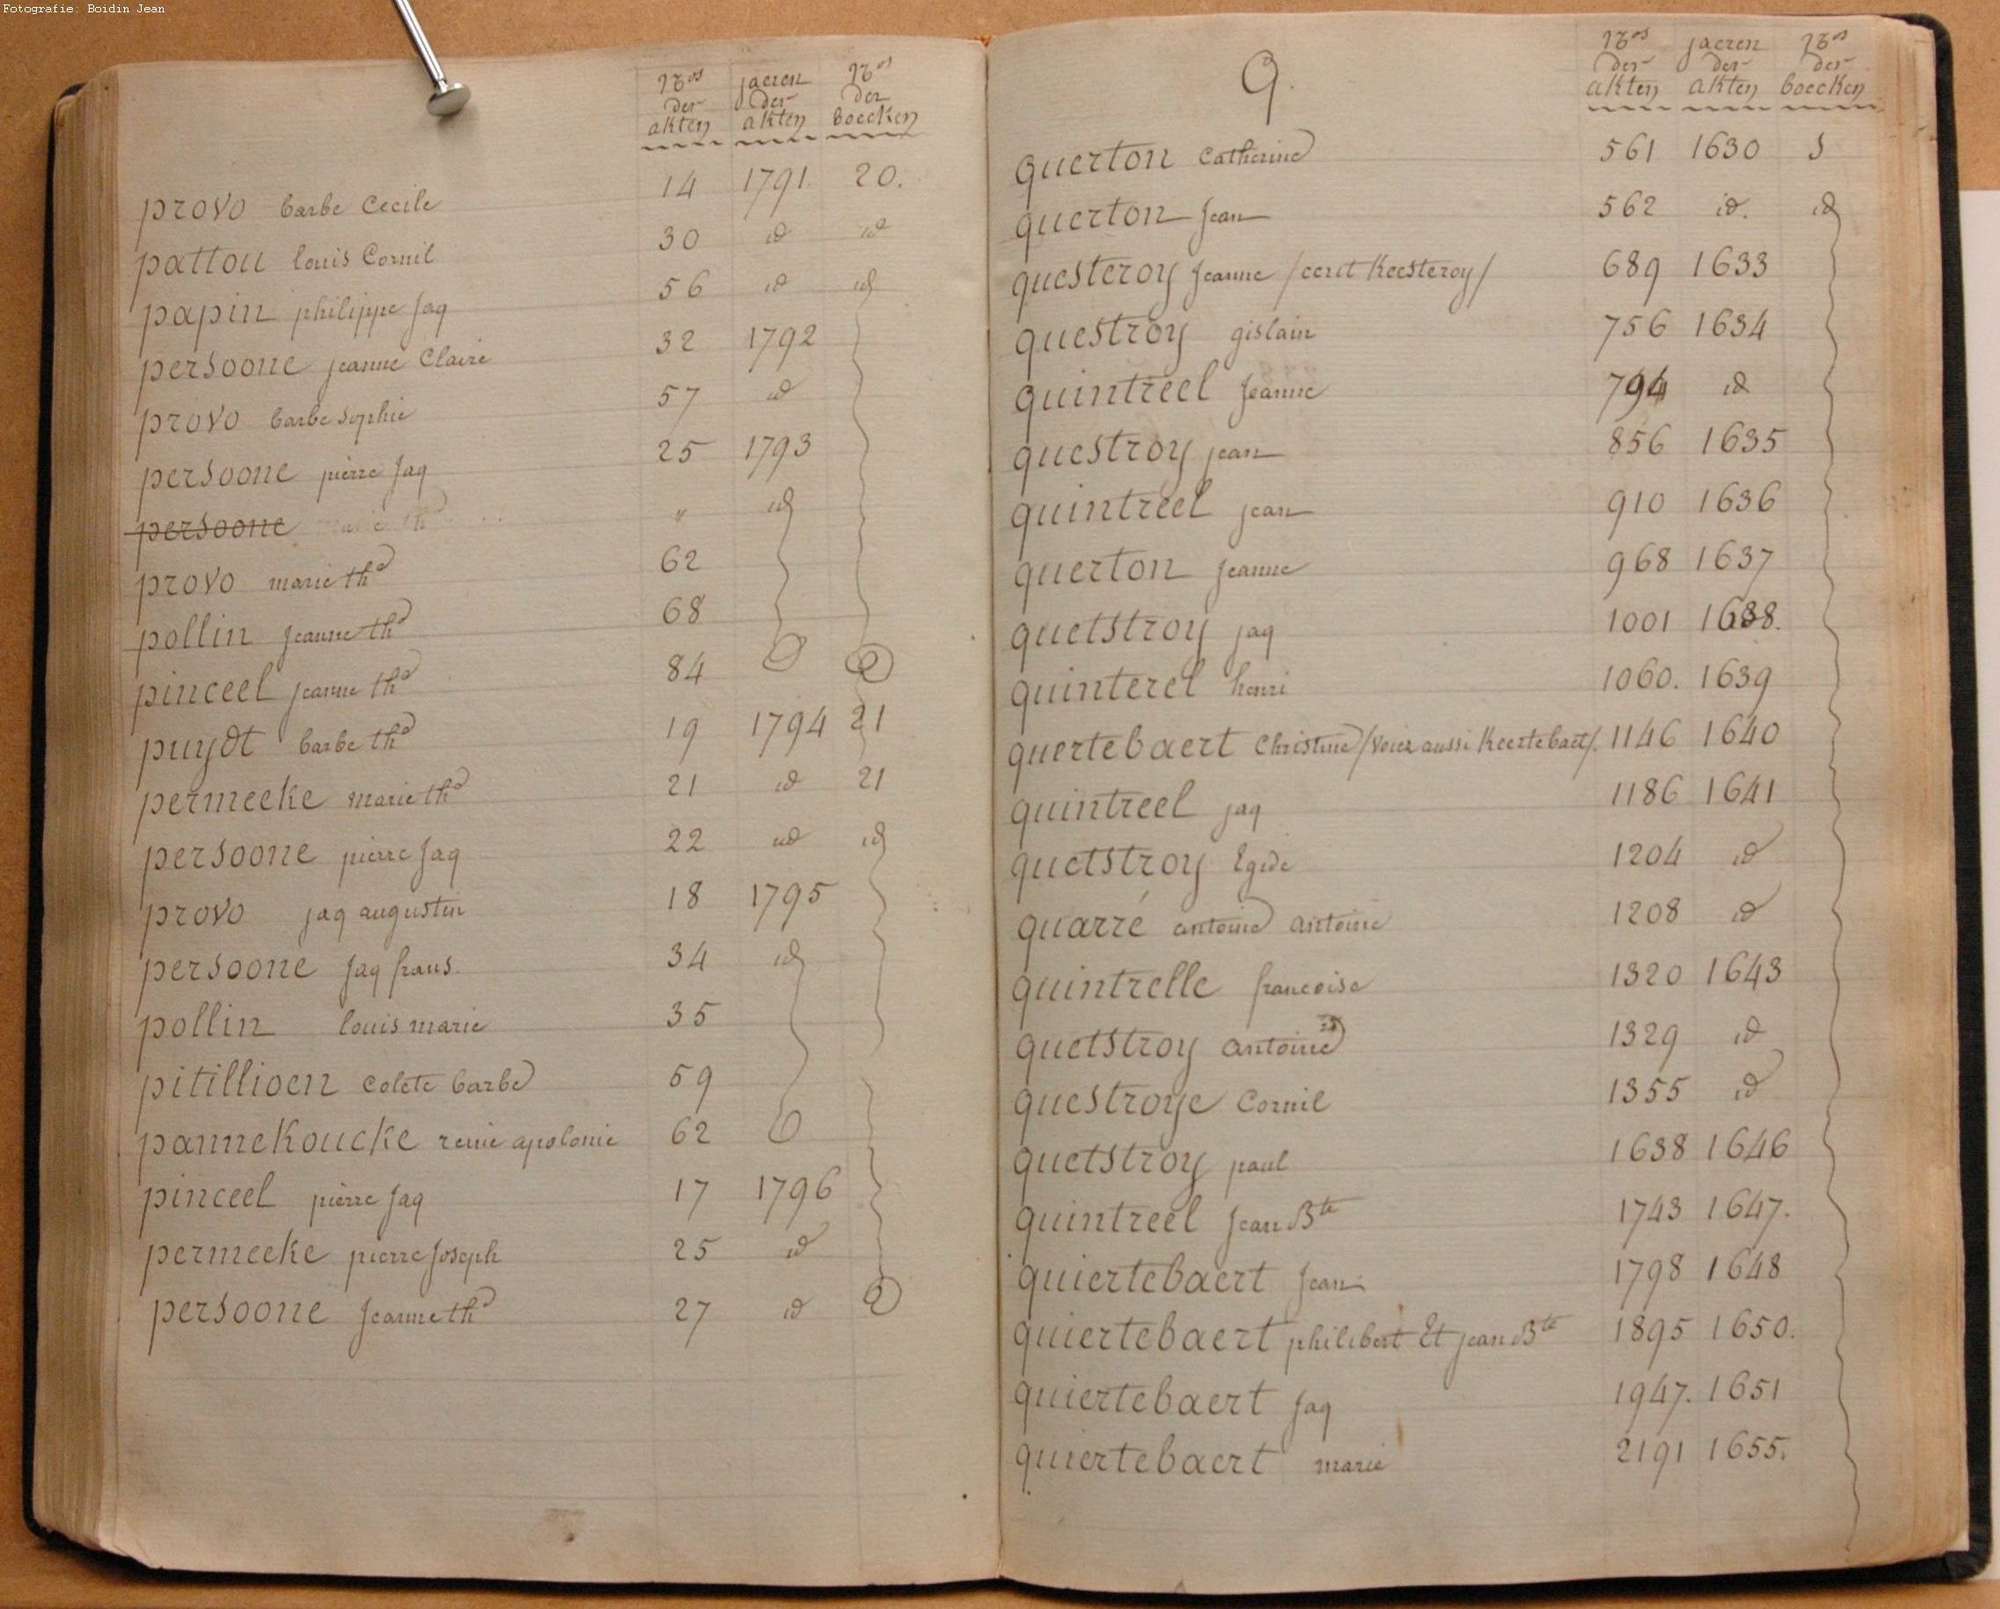 Fotografie: Boidin Jean
Nos der akten jaeren der akten Nos der boecken
provo barbe Cecile 14 1791 20.
pattou louis Cornil 30 id id
papin philippe Jaq 56 id id
persoone jeanne Claire 32 1792
provo barbe sophie 57 id
persoone pierre Jaq 25 1793
persoone marie th " id
provo marie the 62
pollin Jeanne the 68
pinceel jeanne the 84
puydt barbe the 19 1794 21
permeeke marie the 21 id 21
persoone pierre Jaq 22 id id
provo jaq augustin 18 1795
persoone Jaq frans. 34 id
pollin louis marie 35
pitillioen Colete barbe 59
pannekoucke reine apolonie 62
pinceel pierre Jaq 17 1796
permeeke pierre Joseph 25 id
persoone Jeanne the 27 id
Q.
Nos der akten jaeren der akten Nos der boecken
querton Catherine 561 1630
querton Jean 562 id. id
questeroy Jeanne /ecrit Keesteroy/ 689 1633
questroy gislain 756 1634
quintreel Jeanne 794 id
questroy jean 856 1635
quintreel jean 910 1636
querton jeanne 968 1637
quetstroy jaq 1001 1638.
quinterel henri 1060. 1639
quertebaert Christine /voiez aussi Keertebaet/. 1146 1640
quintreel jaq 1186 1641
quetstroy Egide 1204 id
quarré antoine antoine 1208 id
quintrelle francoise 1320 1643
quetstroy antoine 1329 id
questroye Cornil 1355 id
quetstroy paul 1638 1646
quintreel Jean Bte 1743 1647.
quiertebaert Jean 1798 1648
quiertebaert philibert Et jean Bte 1895 1650.
quiertebaert Jaq 1947. 1651
quiertebaert marie 2191 1655.